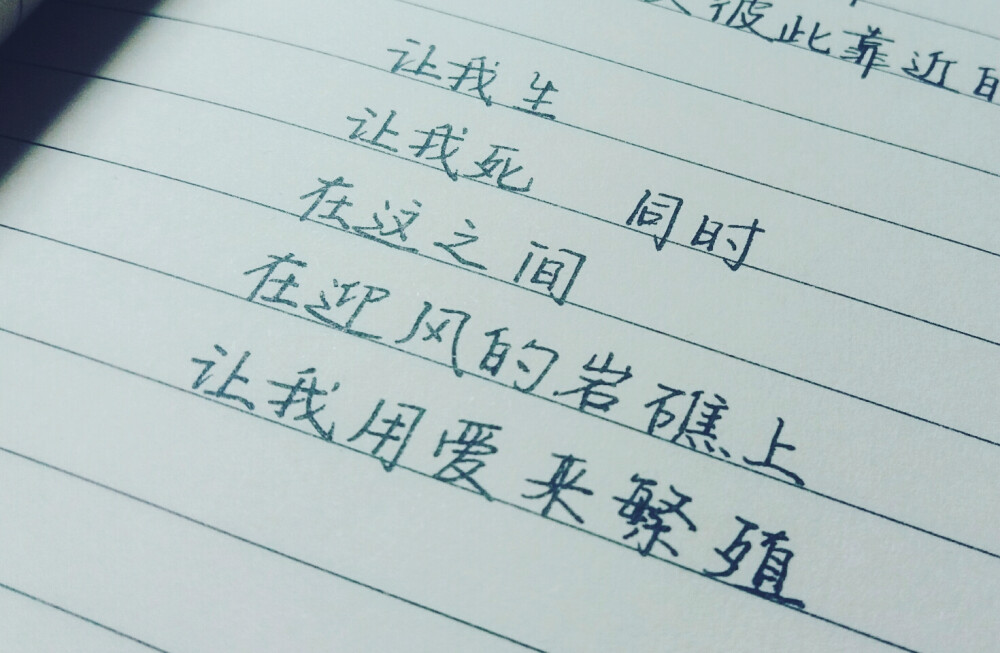 彼此靠近
让我生
让我死 同时
在这之间
在迎风的岩礁上
让我用爱来繁殖